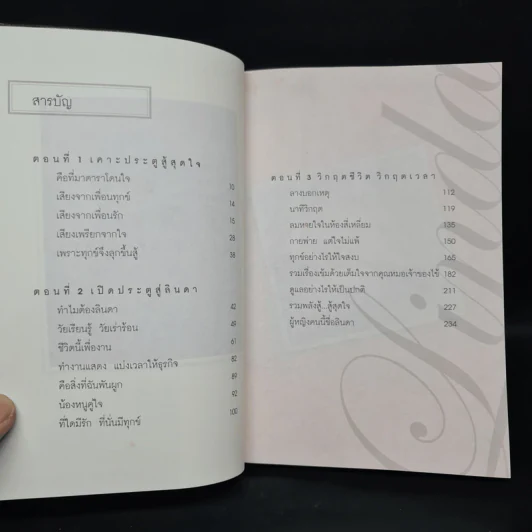 สารบัญ
ตอนที่ 1 เคาะประตูสู้สุดใจ
คือที่มาดาราโดนใจ 10
เสียงจากเพื่อนทุกข์ 14
เสียงจากเพื่อนรัก 15
เสียงเพรียกจากใจ 26
เพราะทุกข์จึงลุกขึ้นสู้ 36
ตอนที่ 2 เปิดประตูสู่ลินดา
ทำไมต้องลินดา 42
วัยเรียนรู้ วัยเร่าร้อน 49
ชีวิตนี้เพื่องาน 61
ทำงานแสดง แบ่งเวลาให้ธุรกิจ 82
คือสิ่งที่ฉันพันผูก 89
น้องหนูคู่ใจ 92
ที่ใดมีรัก ที่นั่นมีทุกข์ 100
ตอนที่ 3 วิกฤตชีวิต วิกฤตเวลา
ลางบอกเหตุ 112
นาทีวิกฤต 119
ลมหายใจในห้องสี่เหลี่ยม 135
กายพ่าย แต่ใจไม่แพ้ 150
ทุกข์อย่างไรให้ใจสงบ 165
รวมเรื่องเข้มด้วยเต็มใจจากคุณหมอเจ้าของไข้ 182
ดูแลอย่างไรให้เป็นปกติ 211
รวมพลังสู้...สู้สุดใจ 227
ผู้หญิงคนนี้ชื่อลินดา 254
Linda